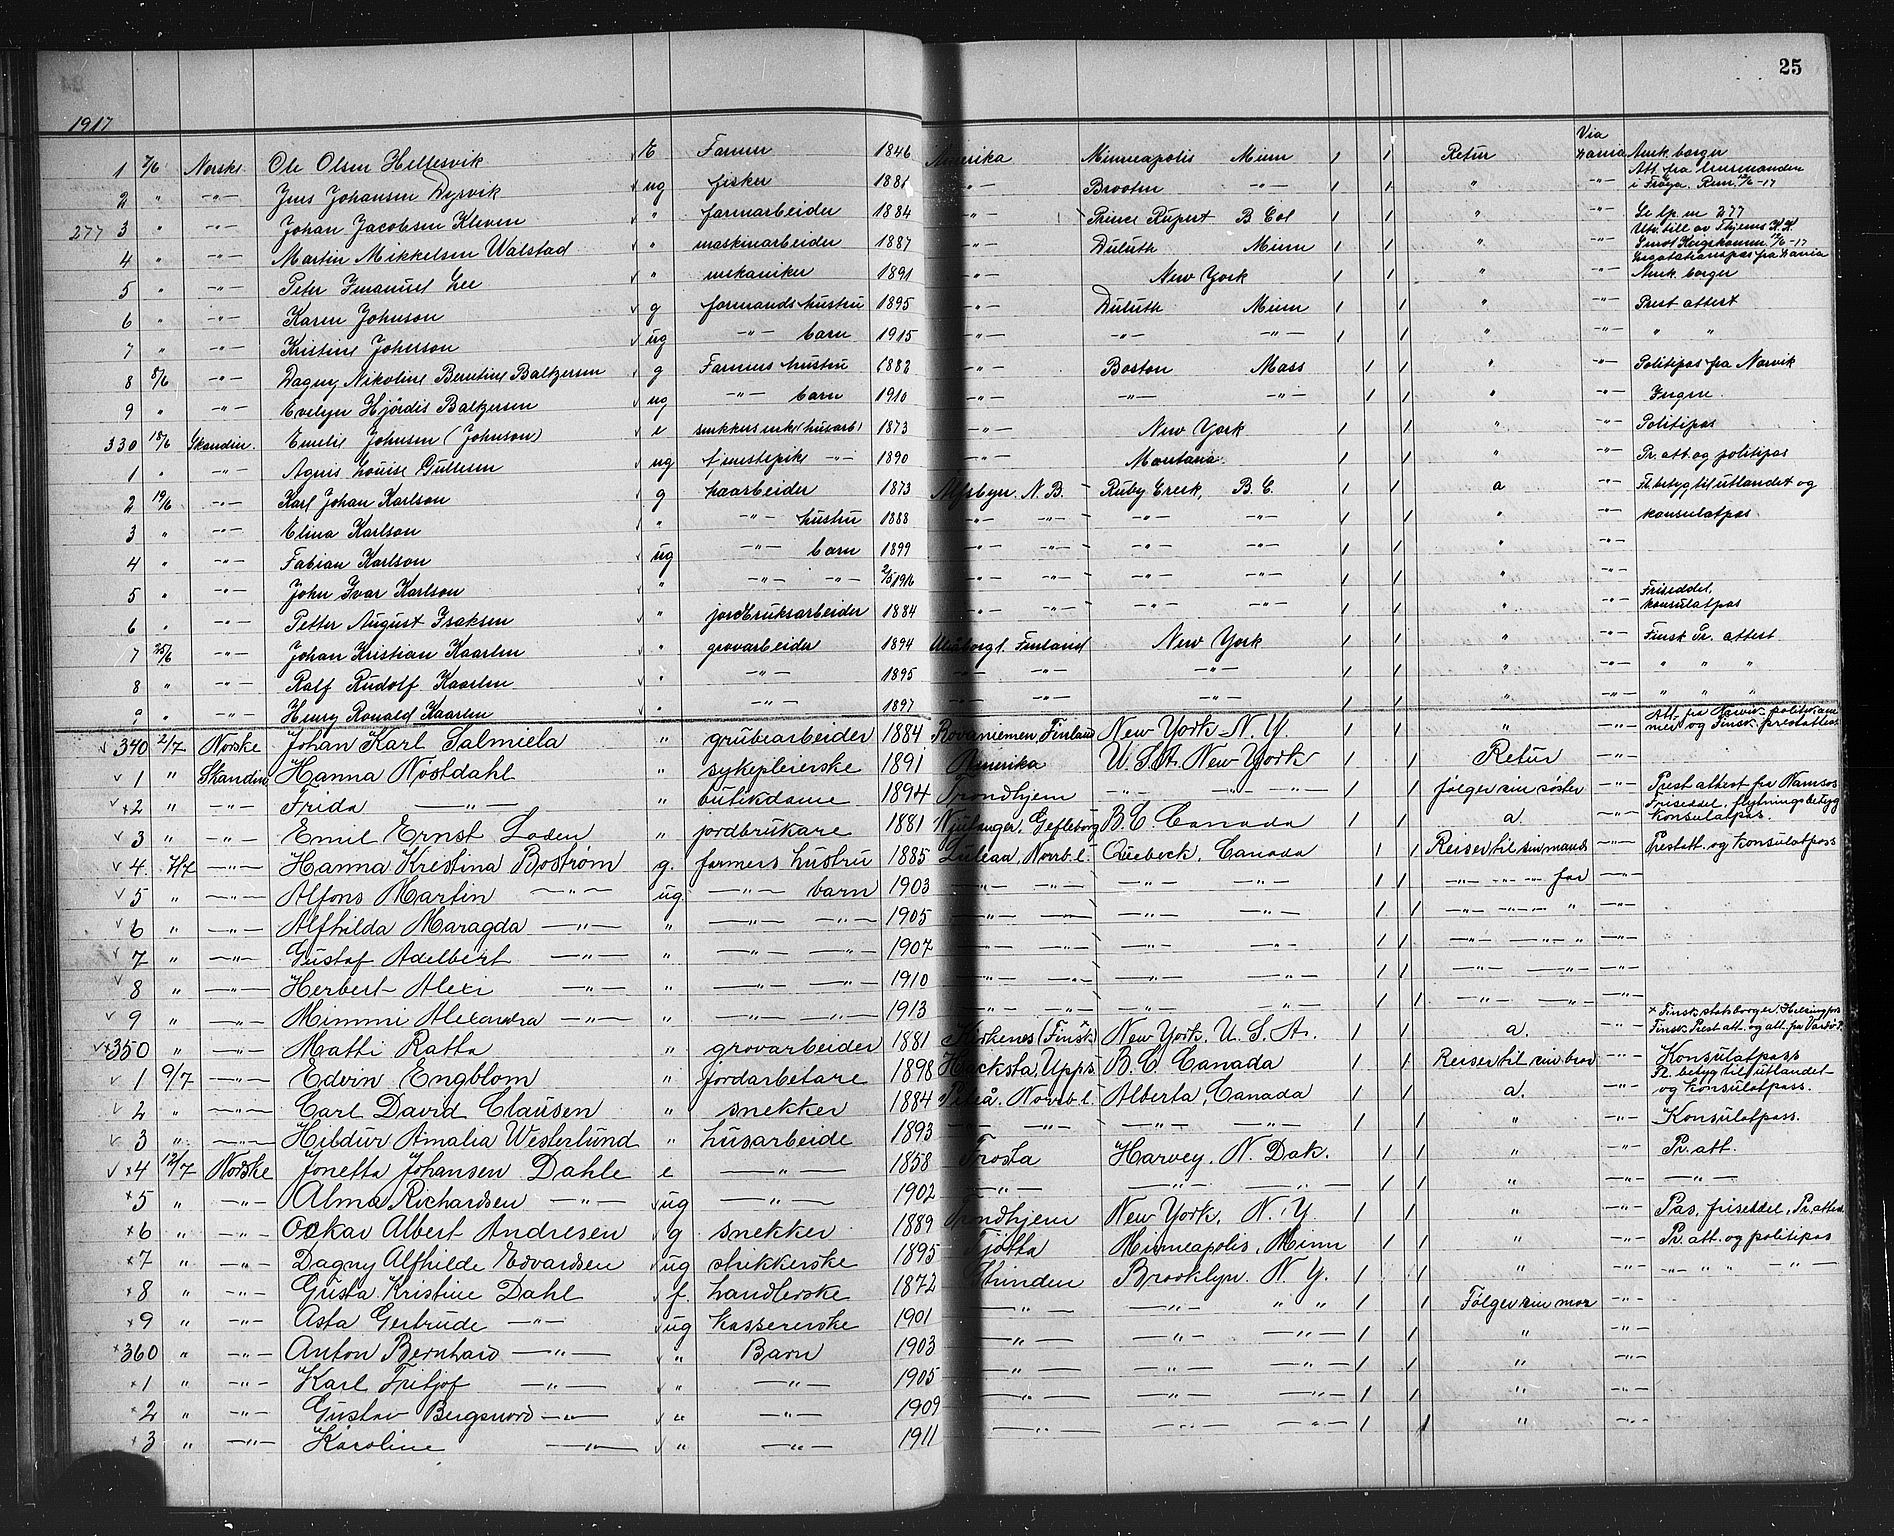 25
1917
Via
1 7/6 Norske Ole Olsen Hellesvik E Farmer 1846 Amerika Minneapolis Minn 1 1 Retur Xania Amk. borger
2 " -"- Jens Johansen Dyrvik ug fisker 1881 -"- Brooten 1 1 " -"- Att. fra lensmanden i Frøya. Rem. 12/6-17
277 3 " -"- Johan Jacobsen Kleven " farmarbeider 1884 -"- Prince Rupert B Col 1 1 " -"- Se lp. nr 277
4 " -"- Martin Mikkelsen Walstad " maskinarbeider 1887 -"- Duluth Minn 1 1 " -"-
5 " -"- Peter Imanuel Lee " mekaniker 1891 -"- New York 1 1 " -"- Legotationspas fra Xania Amk. borger
6 " -"- Karen Johnson g farmands hustru 1895 -"- Duluth Minn 1 1 " -"- Prest attest
7 " -"- Kristine Johnson ug -"- barn 1915 -"- -"- -"- 1 1 " -"- " "
8 8/6 -"- Dagny Nikoline Berntine Baltzersen g Farmers hustru 1882 -"- Boston Mass 1 1 " -"- Politipas fra Narvik
9 " -"- Evelyn Hjördis Baltzersen ug -"- barn 1910 -"- -"- -"- 1 1 " -"- Ingen.
330 18/6 Skandin. Emelie Johnsen (Johnson) e snekkers enke (husarb) 1873 -"- New York 1 1 " -"- Politipas
1 " -"- Agnes Louise Gullesen ug tjenestepike -"- 1890 -"- Montana. 1 1 " -"- Pr. att. og politipas
2 19/6 -"- Karl Johan Karlson g haarbeider 1873 Alfsbyn. N. B. Ruby Creek, B. C. 1 1 a -"- Fl. betyg til utlandet og
3 " -"- Elina Karlson " -"- hustru 1888 -"- -"- -"- -"- 1 1 " -"- konsulatpas.
4 " -"- Fabian Karlson ug -"- barn 1899 -"- -"- -"- -"- 1 1 " -"-
5 " -"- John Ivar Karlson " -"- -"- 2/5 1916 -"- -"- -"- -"- 1 1 " -"-
6 " -"- Petter August Isaksen " jordbruksarbeider 1884 -"- -"- -"- -"- 1 1 " -"- Friseddel, konsulatpas
7 25/6 -"- Johan Kristian Kaarlen " grovarbeider 1894 Uleåborg l. Finland New York 1 1 " -"- Finsk Pr. attest.
8 " -"- Ralf Rudolf Kaarlen " -"- 1895 -"- -"- -"- 1 1 " -"- " " "
9 " -"- Henry Ronald Kaarlen " 1897 -"- -"- 1 1 " -"- " " "
340 2/7 Norske Johan Karl Salmiela " grubearbeider 1884 Rovaniemen, Finland New York N. Y. 1 1 " -"- Att. fra Narvik politikammer og Finsk prestattest
1 " Skandin Hanna Nöstdahl " sykepleierske 1891 Amerika U. S. A. New York 1 1 Retur -"-
x2 " -"- Frida -"- " butikdame 1894 Trondhjem -"- -"- 1 1 følger sin søster -"- Prest attest fra Namsos
3 " -"- Emil Ernst Loden " jordbrukare 1881 Njutanger, Gefleborg B. C. Canada 1 1 a. -"- Friseddel, flytningsbetyg Konsulatpas.
4 7/7 -"- Hanna Kristina Bostrøm g. farmers hustru 1885 Luleaa, Norrb. l. Quebeck, Canada 1 1 Reiser til sin mand -"- Prestatt. og Konsulatpass
5 " -"- Alfons Martin -"- ug -"- barn 1903 -"- -"- -"- -"- 1 1 -"- -"- far -"-
6 " -"- Alfhilda Maragda -"- " -"- -"- 1905 -"- -"- -"- -"- 1 1 -"- -"- " -"-
7 " -"- Gustaf Adelbert -"- " -"- -"- 1907 -"- -"- -"- -"- 1 1 -"- -"- " -"-
8 " -"- Herbert Alexi -"- " -"- -"- 1910 -"- -"- -"- -"- 1 1 -"- -"- -"-
9 " -"- Mimmi Alexandra -"- " -"- -"- 1913 -"- -"- -"- -"- 1 1 -"- -"- -"-
x350 " -"- Matti Ratta " grovarbeider 1881 Kirkenes (Finsk) New York. U. S. A. 1 1 a. -"- x Finsk statsborger, Helsingfors Finsk Prest att. og att. fra Vardø P.
1 9/7 -"- Edvin Engblom " jordarbetare 1898 Hacksta, Upps. B. C. Canada 1 1 Reiser til sin bror -"- Konsulatpass
2 " -"- Carl David Clausen " snekker 1884 Piteå. Norrb. l. Alberta, Canada 1 1 a. -"- Fl. betyg til utlandet og Konsulatpass.
3 " -"- Hildur Amalia Westerlund " husarbeide 1893 -"- -"- -"- -"- 1 1 " -"- Konsulatpass.
x4 12/7 Norske Jonetta Johansen Dahle e -"- 1858 Frosta Harvey. N. Dak. 1 1 " -"- Pr. att.
x5 " -"- Alma Richardsen -"- ug -"- 1902 -"- -"- -"- 1 1 " -"- -"-
x6 " -"- Oskar Albert Andresen g snekker 1889 Trondhjem New York, N. Y. 1 1 " -"- Pas, friseddel, Pr. attest.
x7 " -"- Dagny Alfhilde Edvardsen ug strikkerske 1895 Tjøtta Minneapolis, Minn 1 1 " -"- Pr. att. og politipas
x8 " -"- Gusta Kristine Dahl f. handlerske 1872 Strinden Brooklyn. N. Y. 1 1 " -"- -"- " -"-
x9 " -"- Asta Gertrude -"- ug Kassererske 1901 -"- -"- " " 1 1 Følger sin mor -"-
x360 " -"- Anton Bernhard -"- " Barn 1903 -"- -"- -"- 1 1 " -"-
x1 " -"- Karl Fritjof -"- " -"- 1905 -"- -"- -"- 1 1 " -"-
x2 " -"- Gustav Bergsnord -"- " -"- 1909 -"- -"- -"- 1 1 " -"-
x3 " -"- Karoline -"- " -"- 1911 -"- -"- -"- 1 1 " -"-